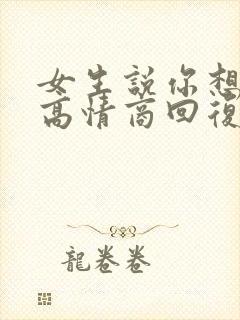 女生説你想
高情商回復
龍卷卷